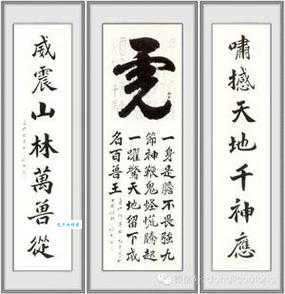 嘯撼天地千神應
虎
一身是膽不畏強九
節神鞭鬼怪慌騰起
一躍驚天地留下威
名百兽王
威震山林萬兽從